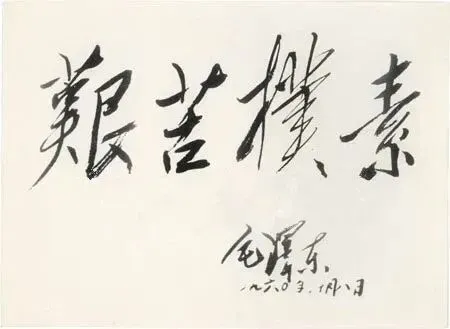 艱苦樸素
毛澤东
一九六〇年,一月八日